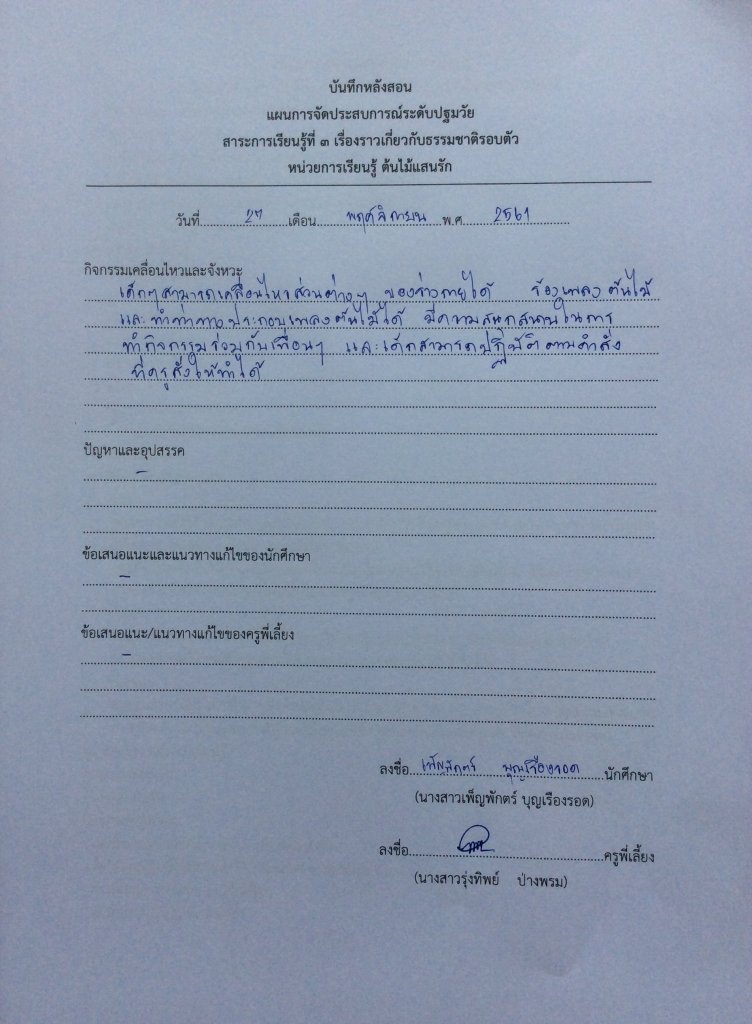 บันทึกหลังสอน
แผนการจัดประสบการณ์ระดับปฐมวัย
สาระการเรียนรู้ที่ ๓ เรื่องราวเกี่ยวกับธรรมชาติรอบตัว
หน่วยการเรียนรู้ ต้นไม้แสนรัก
วันที่ 27 เดือน พฤศจิกายน พ.ศ. 2561
กิจกรรมเคลื่อนไหวและจังหวะ
เด็กๆสามารถเคลื่อนไหวส่วนต่างๆ ของร่างกายได้ ร้องเพลงต้นไม้
และทำท่าทางประกอบเพลงต้นไม้ได้ มีความสนุกสนานในการ
ทำกิจกรรมร่วมกับเพื่อนๆ และเด็กสามารถปฏิบัติตามคำสั่ง
ที่ครูสั่งให้ทำได้
ปัญหาและอุปสรรค
-
ข้อเสนอแนะและแนวทางแก้ไขของนักศึกษา
-
ข้อเสนอแนะ/แนวทางแก้ไขของครูพี่เลี้ยง
-
ลงชื่อ เพ็ญพักตร์ บุญเรืองรอด นักศึกษา
(นางสาวเพ็ญพักตร์ บุญเรืองรอด)
ลงชื่อ ครูพี่เลี้ยง
(นางสาวรุ่งทิพย์ ปางพรม)